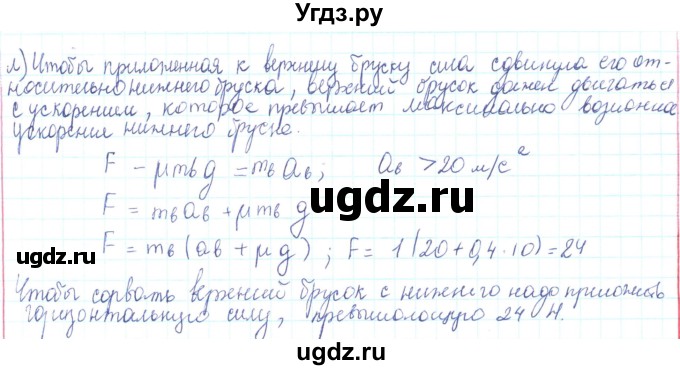 Угдз.ру
л) Чтобы приложенная к верхнему бруску сила сдвинула его от-
носительно нижнего бруска, верхний брусок должен двигаться
с ускорением, которое превышает максимально возможное
ускорение нижнего бруска.
F - μmвg = mвaв; aв > 20 м/с²
F = mвaв + μmвg
F = mв(aв + μg); F = 1(20+0,4·10)=24
Чтобы сорвать верхний брусок с нижнего надо приложить
горизонтальную силу, превышающую 24 Н.
ugdz.ru
ugdz.ru
ugdz.ru
ugdz.ru
ugdz.ru